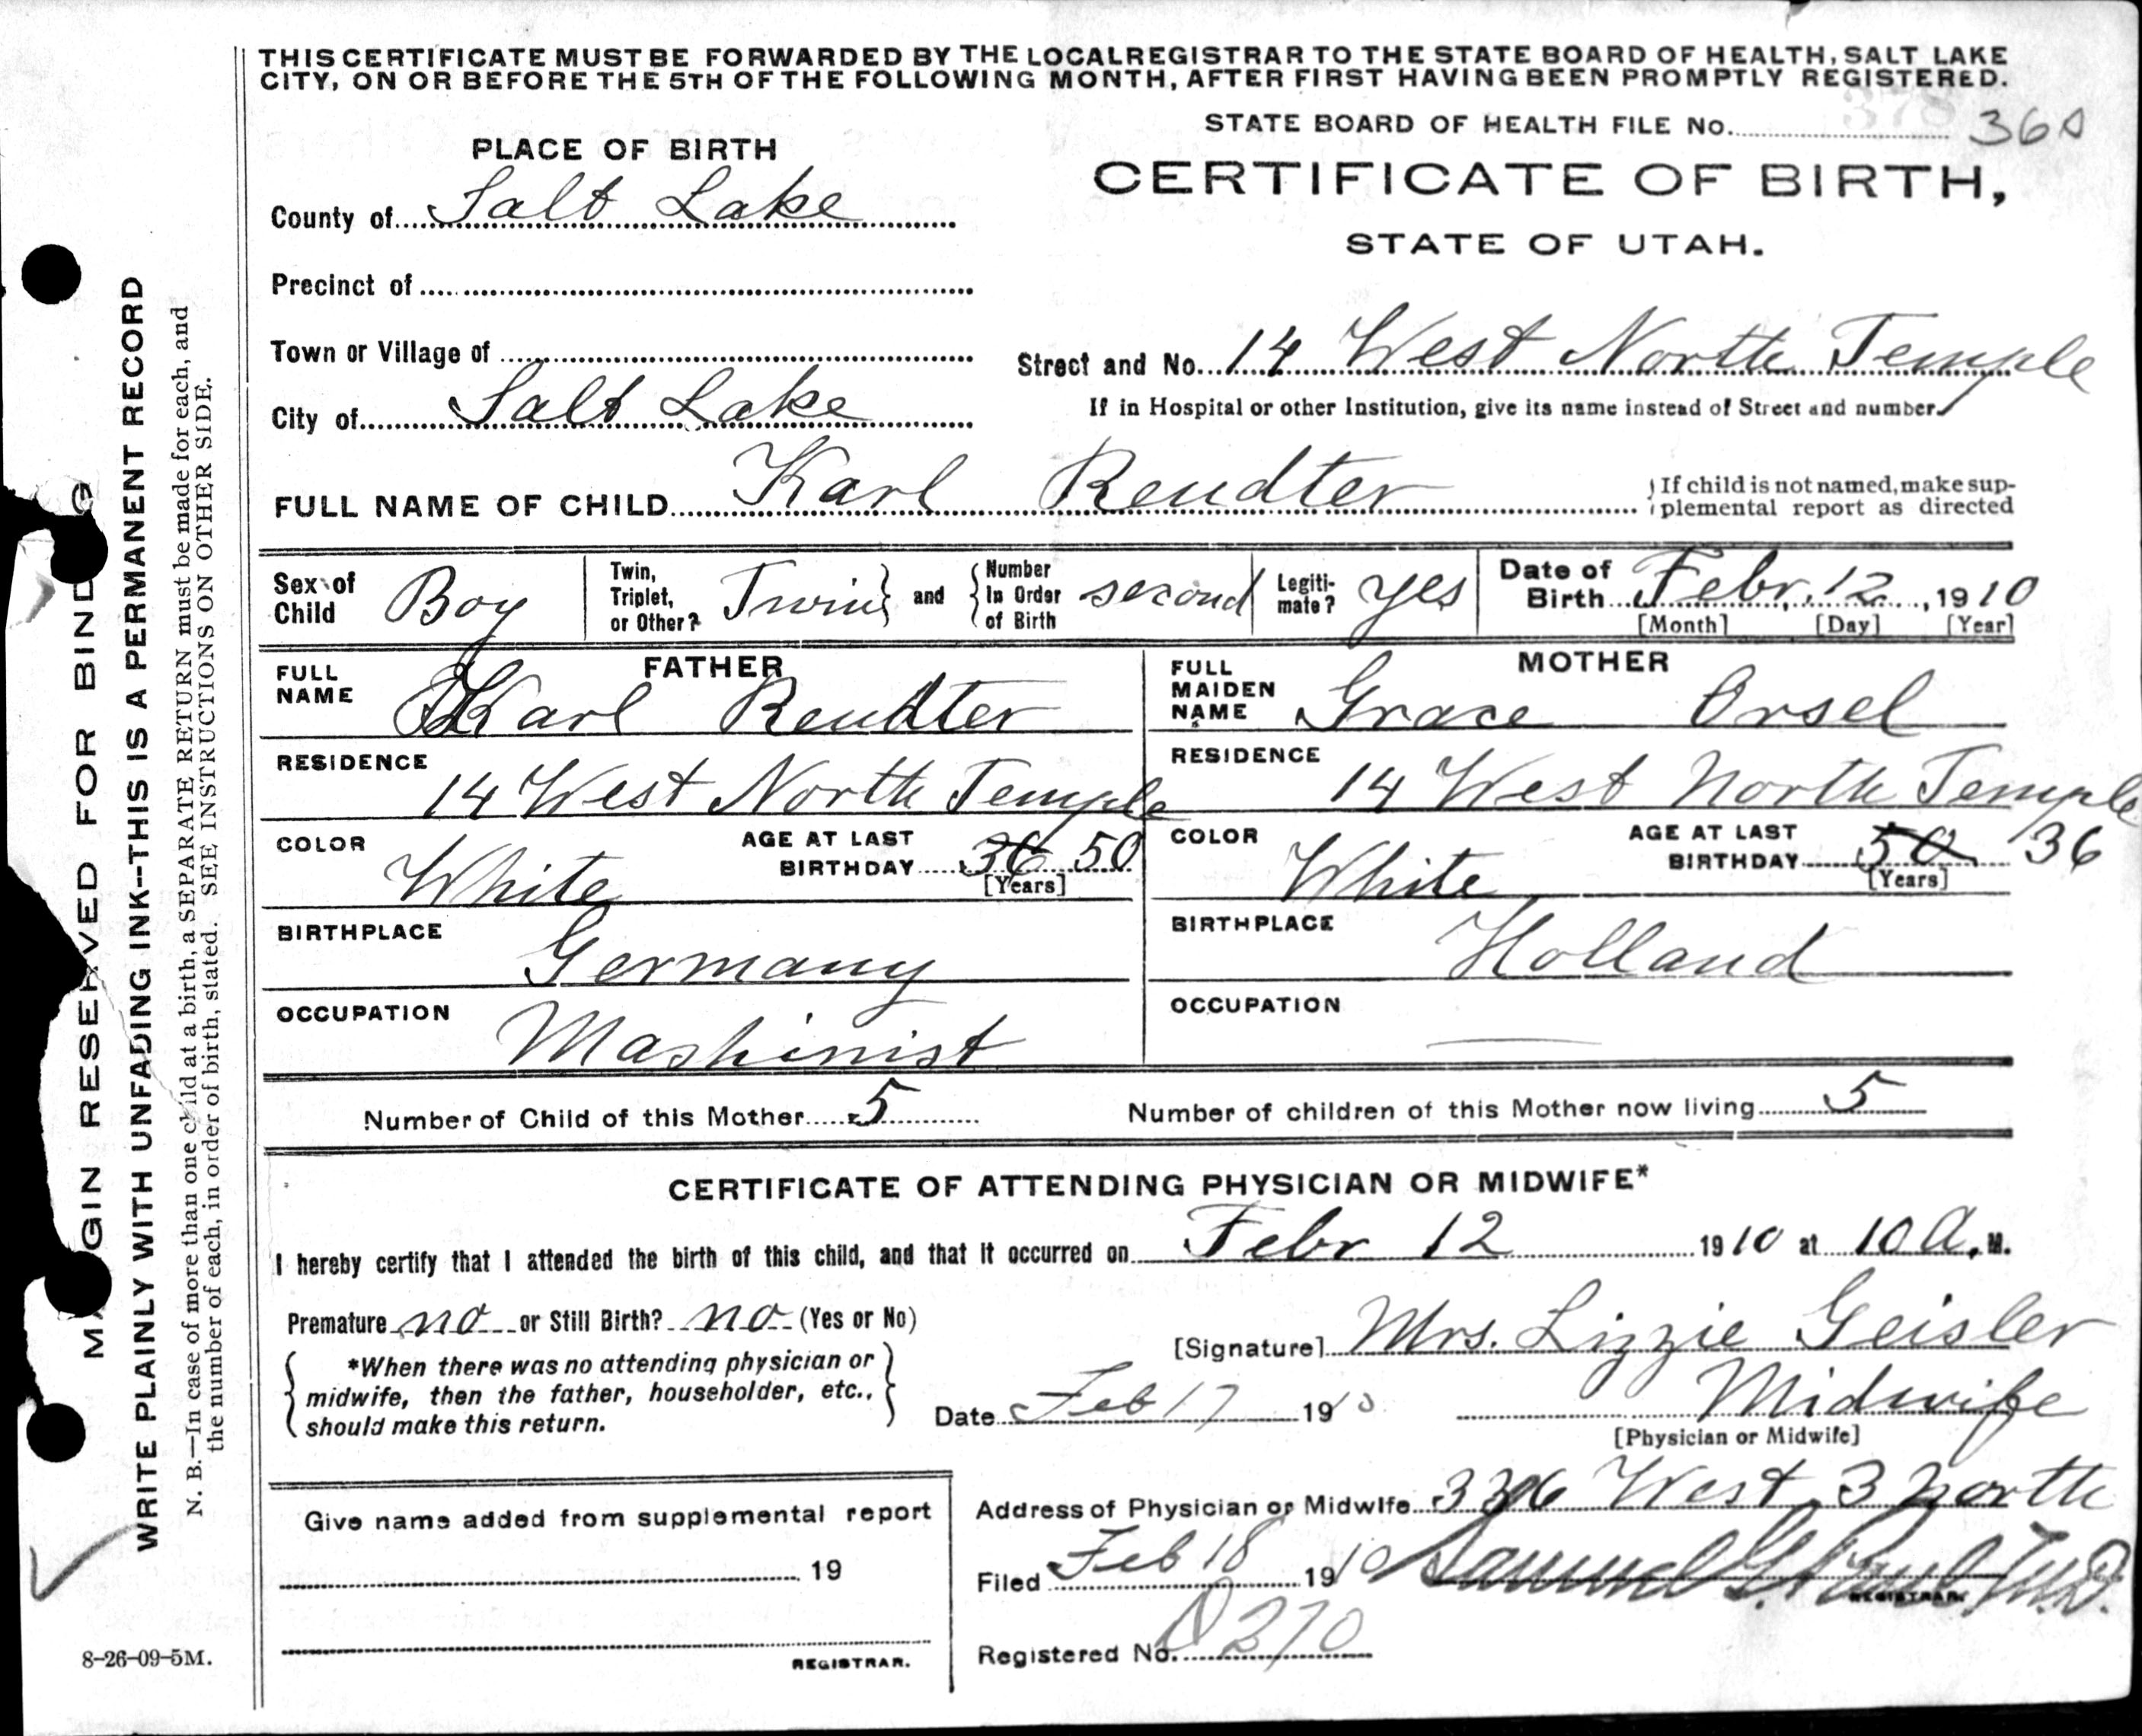 THIS CERTIFICATE MUST BE FORWARDED BY THE LOCAL REGISTRAR TO THE STATE BOARD OF HEALTH, SALT LAKE
CITY, ON OR BEFORE THE 5TH OF THE FOLLOWING MONTH, AFTER FIRST HAVING BEEN PROMPTLY REGISTERED.
378
STATE BOARD OF HEALTH FILE No.
PLACE OF BIRTH
CERTIFICATE OF BIRTH,
STATE OF UTAH.
County of Salt Lake
Precinct of
Town or Village of
Street and No. 14 West North Temple
If in Hospital or other Institution, give its name instead of Street and number.
City of Salt Lake
FULL NAME OF CHILD Karl Reudter
If child is not named, make sup-
plemental report as directed
Sex of Child Boy
Twin, Triplet, or Other? Twin and Number In Order of Birth second
Legiti-mate? yes
Date of Birth Febr. 12, 1910
[Month] [Day] [Year]
FATHER
FULL NAME Karl Reudter
MOTHER
FULL MAIDEN NAME Grace Orsel
RESIDENCE 14 West North Temple
RESIDENCE 14 West North Temple
COLOR White AGE AT LAST BIRTHDAY 36 50 [Years]
COLOR White AGE AT LAST BIRTHDAY 50 36 [Years]
BIRTHPLACE Germany
BIRTHPLACE Holland
OCCUPATION Mashinist
OCCUPATION —
Number of Child of this Mother 5
Number of children of this Mother now living 5
CERTIFICATE OF ATTENDING PHYSICIAN OR MIDWIFE*
I hereby certify that I attended the birth of this child, and that it occurred on Febr 12 1910 at 10 A. M.
Premature no or Still Birth? no (Yes or No)
[Signature] Mrs. Lizzie Geisler
*When there was no attending physician or
midwife, then the father, householder, etc.,
should make this return.
Date Feb 17 1910
Midwife
[Physician or Midwife]
Address of Physician or Midwife 336 West 3 North
Give name added from supplemental report
19
REGISTRAR.
Filed Feb 18 1910 Samuel G. Paul M.D.
REGISTRAR.
Registered No. 270
8-26-09-5M.
MARGIN RESERVED FOR BINDING
WRITE PLAINLY WITH UNFADING INK--THIS IS A PERMANENT RECORD
N. B.--In case of more than one child at a birth, a SEPARATE RETURN must be made for each, and
the number of each, in order of birth, stated. SEE INSTRUCTIONS ON OTHER SIDE.